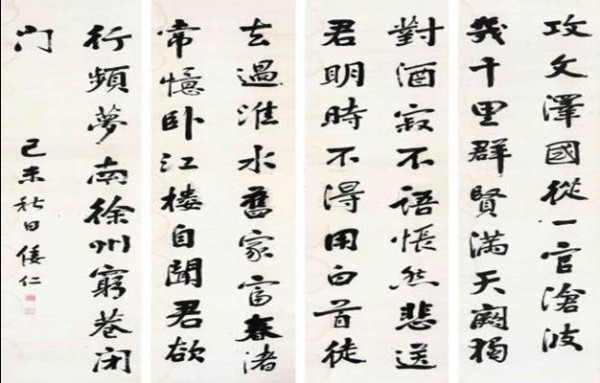 攻文澤國從一官滄波
幾千里群賢滿天闕獨
對酒寂不語悵然悲送
君明時不得用白首徒
去過淮水舊家富春渚
常憶卧江樓自聞君欲
行頻夢南徐州窮巷閉
门
己未秋日倭仁